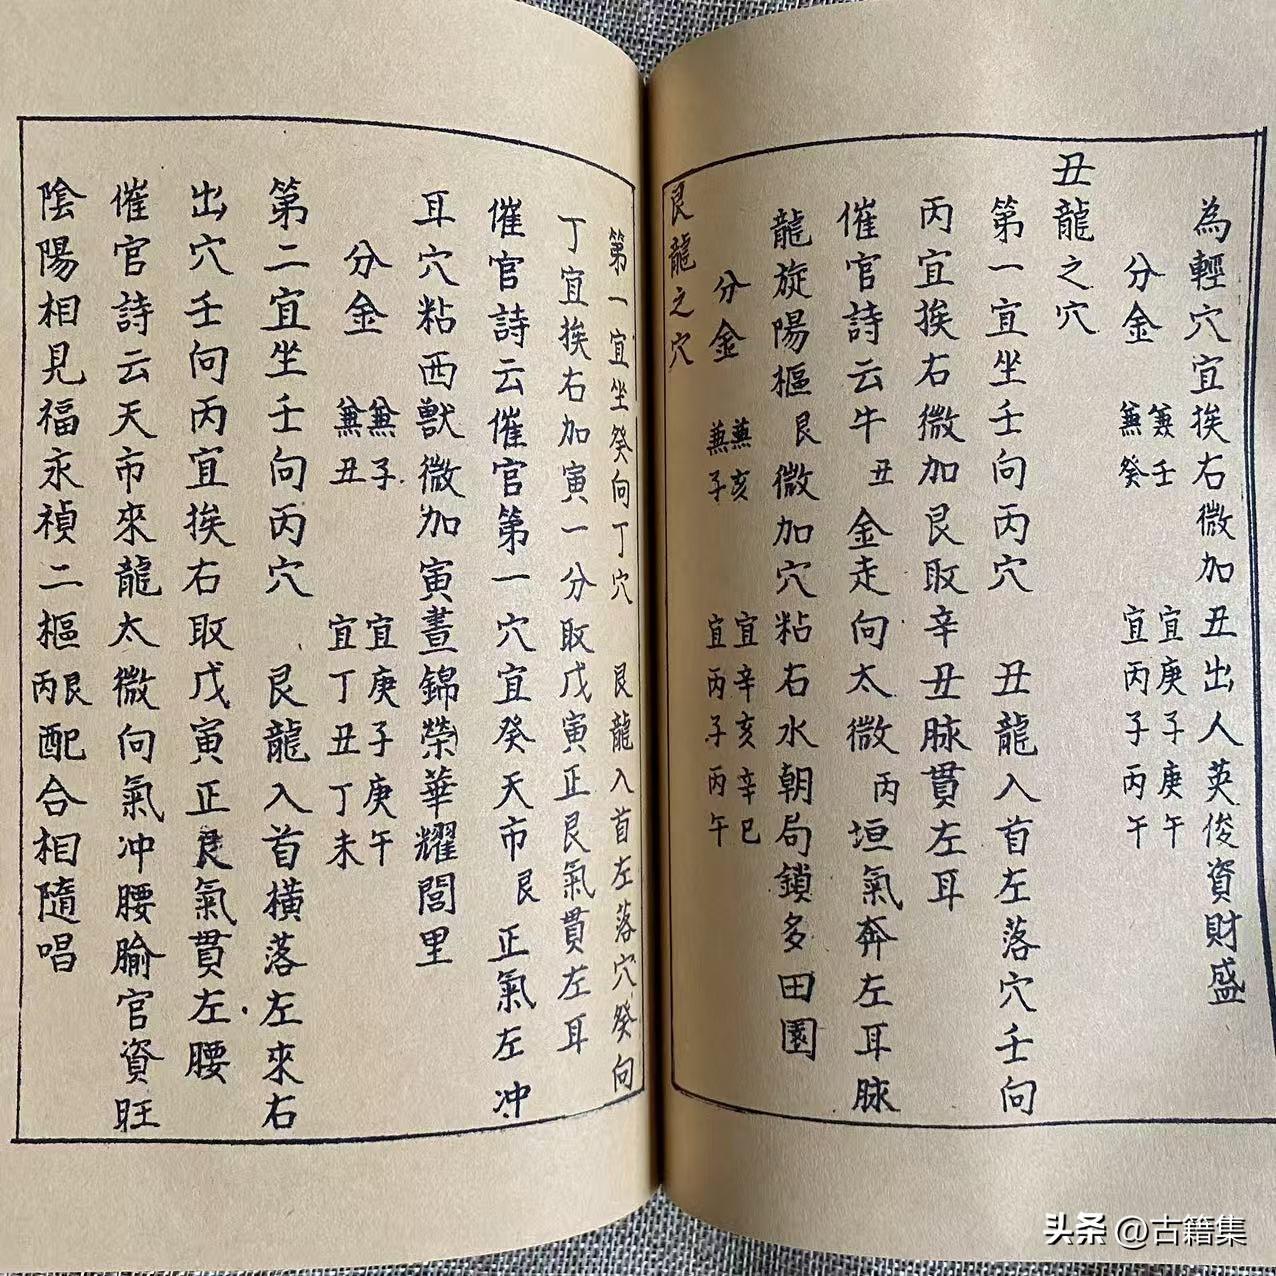 為輕穴宜挨右微加丑出人英俊資財盛
分金 兼壬 兼癸 宜庚子庚午 宜丙子丙午
丑龍之穴
第一宜坐壬向丙穴 丑龍入首左落穴壬向
丙宜挨右微加艮取辛丑脉貫左耳
催官詩云牛丑金走向太微丙垣氣奔左耳脉
龍旋陽樞艮微加穴粘右水朝局鎖多田園
分金 兼亥 兼子 宜辛亥辛巳 宜丙子丙午
艮龍之穴
第一宜坐癸向丁穴 艮龍入首左落穴癸向
丁宜挨右加寅一分取戊寅正艮氣貫左耳
催官詩云催官第一穴宜癸天市艮正氣左冲
耳穴粘西獸微加寅晝錦榮華耀閭里
分金 兼子 兼丑 宜庚子庚午 宜丁丑丁未
第二宜坐壬向丙穴 艮龍入首橫落左來右
出穴壬向丙宜挨右取戊寅正艮氣貫左腰
催官詩云天市來龍太微向氣冲腰腧官資旺
陰陽相見福永禎二樞艮丙配合相隨唱
头条 @古籍集